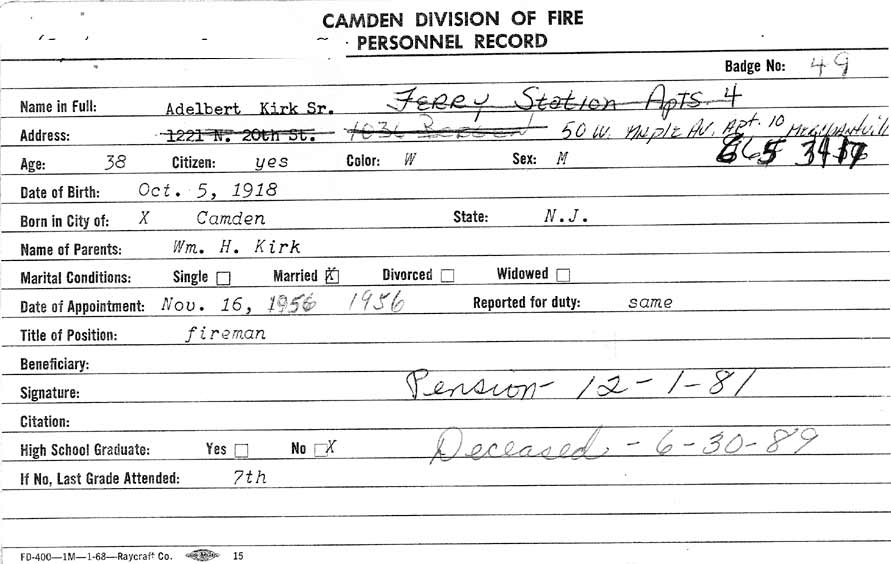 CAMDEN DIVISION OF FIRE
PERSONNEL RECORD
Badge No: 49
Name in Full: Adelbert Kirk Sr. Ferry Station Apts. 4
Address: 1221 N. 20th St. 1036 50 W. Maple Av. Apt. 10
Age: 38 Citizen: yes Color: W Sex: M
Date of Birth: Oct. 5, 1918
Born in City of: X Camden State: N.J.
Name of Parents: Wm. H. Kirk
Marital Conditions: Single Married X Divorced Widowed
Date of Appointment: Nov. 16, 1956 1956 Reported for duty: same
Title of Position: fireman
Beneficiary:
Signature: Pension - 12-1-81
Citation:
High School Graduate: Yes No X Deceased - 6-30-89
If No, Last Grade Attended: 7th
FD-400—1M—1-68—Raycraft Co. 15